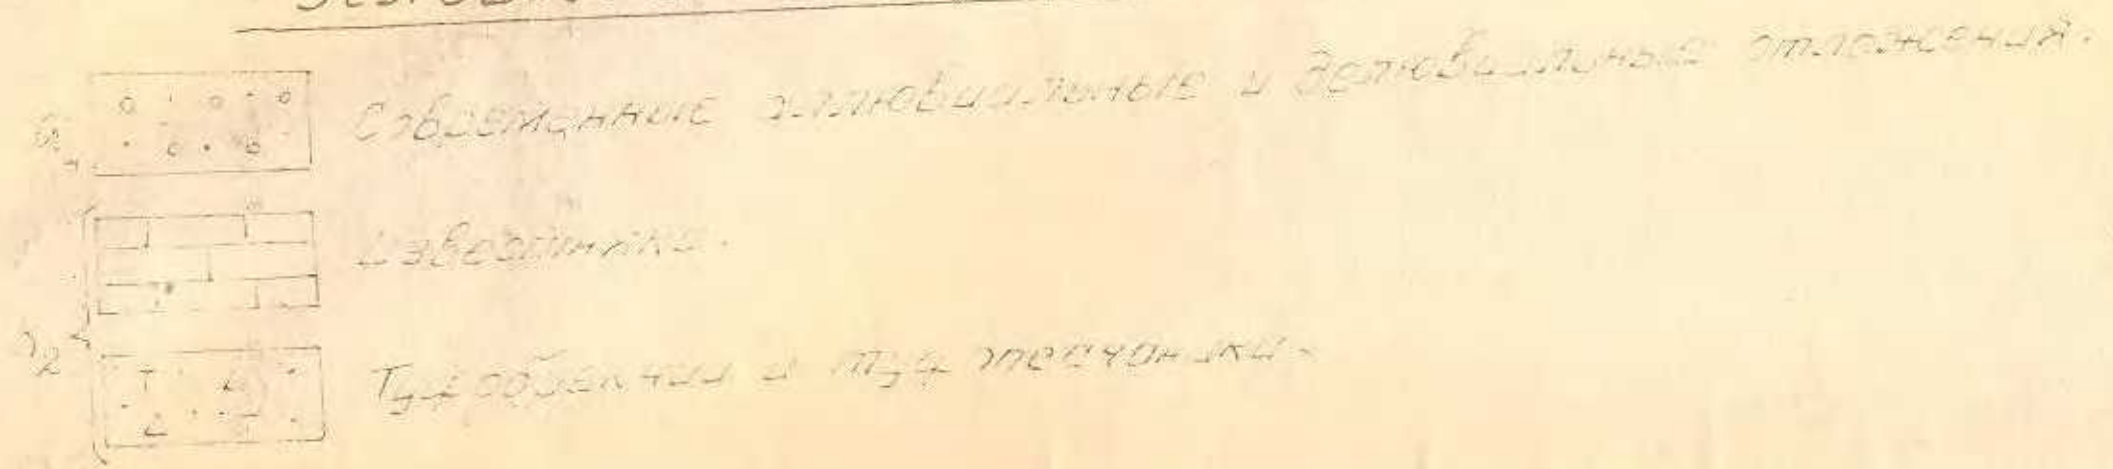 Современные аллювиальные и делювиальные отложения.
Известняки.
Туфобрекчии и туфопесчаники.